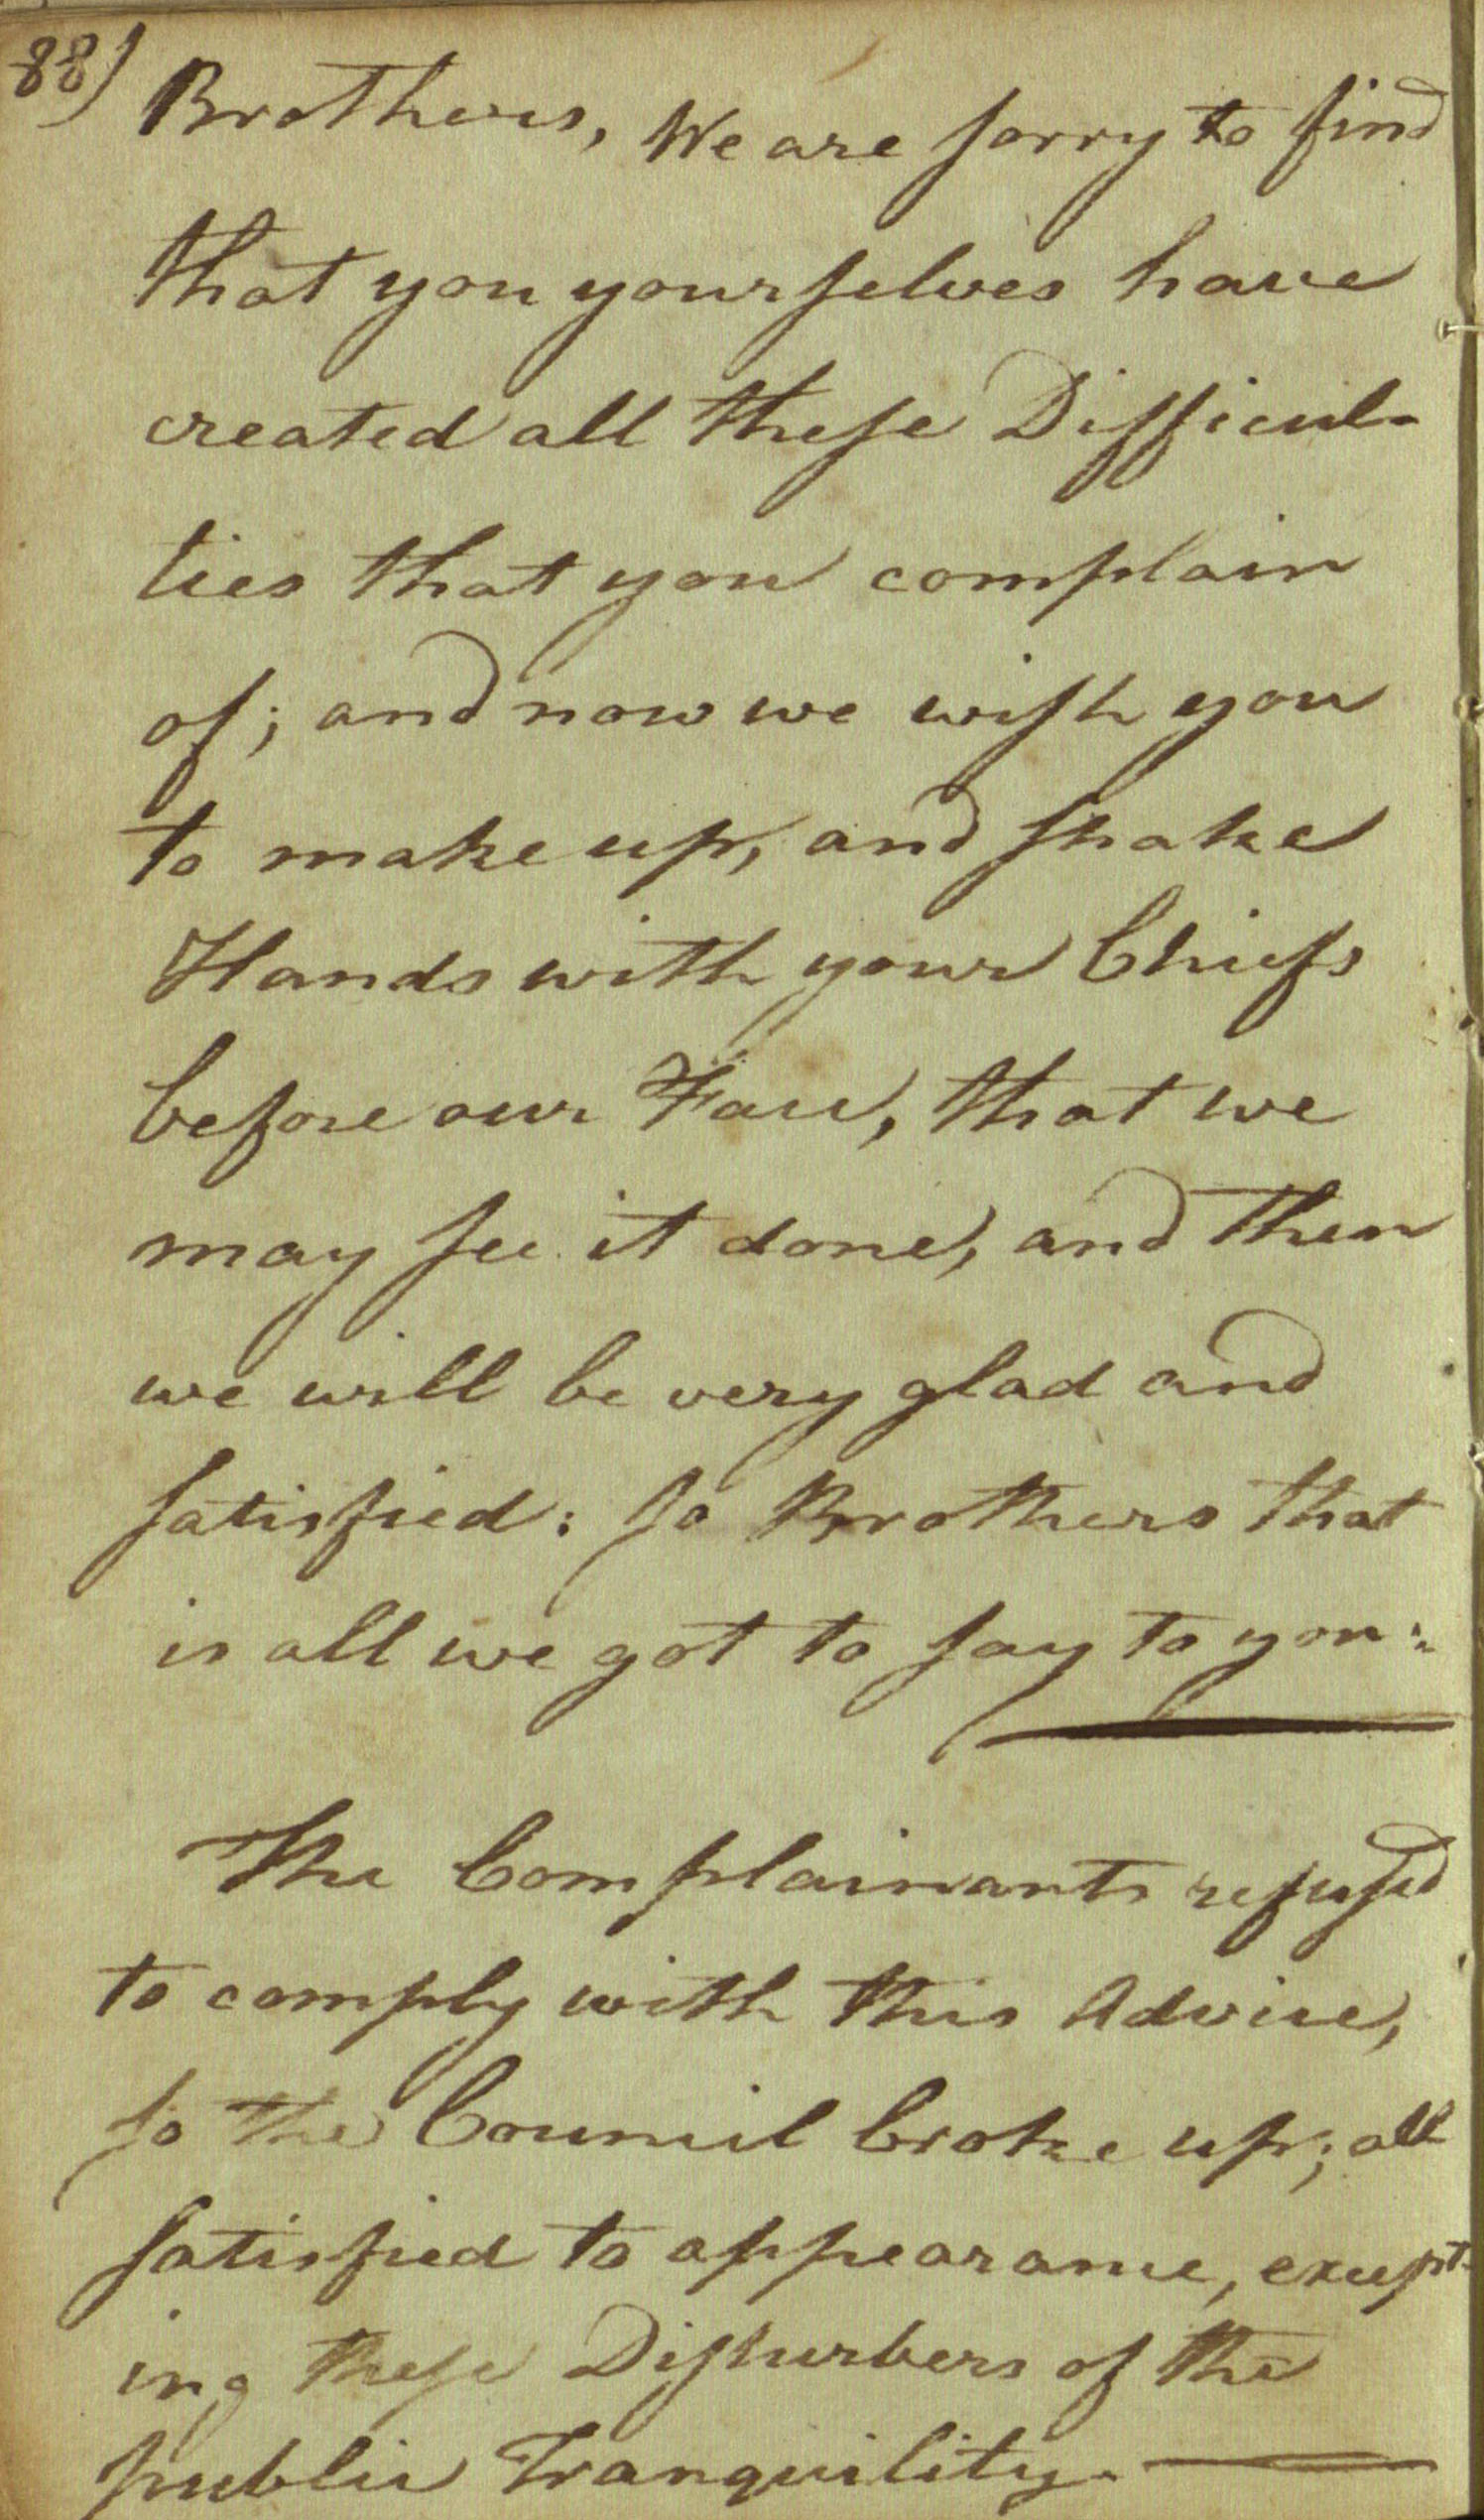 88)
Brothers, We are sorry to find
that you yourselves have
created all these Difficul-
ties that you complain
of; and now we wish you
to make up, and shake
Hands with your Chiefs
before our Face, that we
may see it done, and then
we will be very glad and
satisfied: so Brothers that
is all we got to say to you:
The Complainants refused
to comply with this Advice,
so the Council broke up; all
satisfied to appearance, except-
ing these Disturbers of the
public Tranquility.